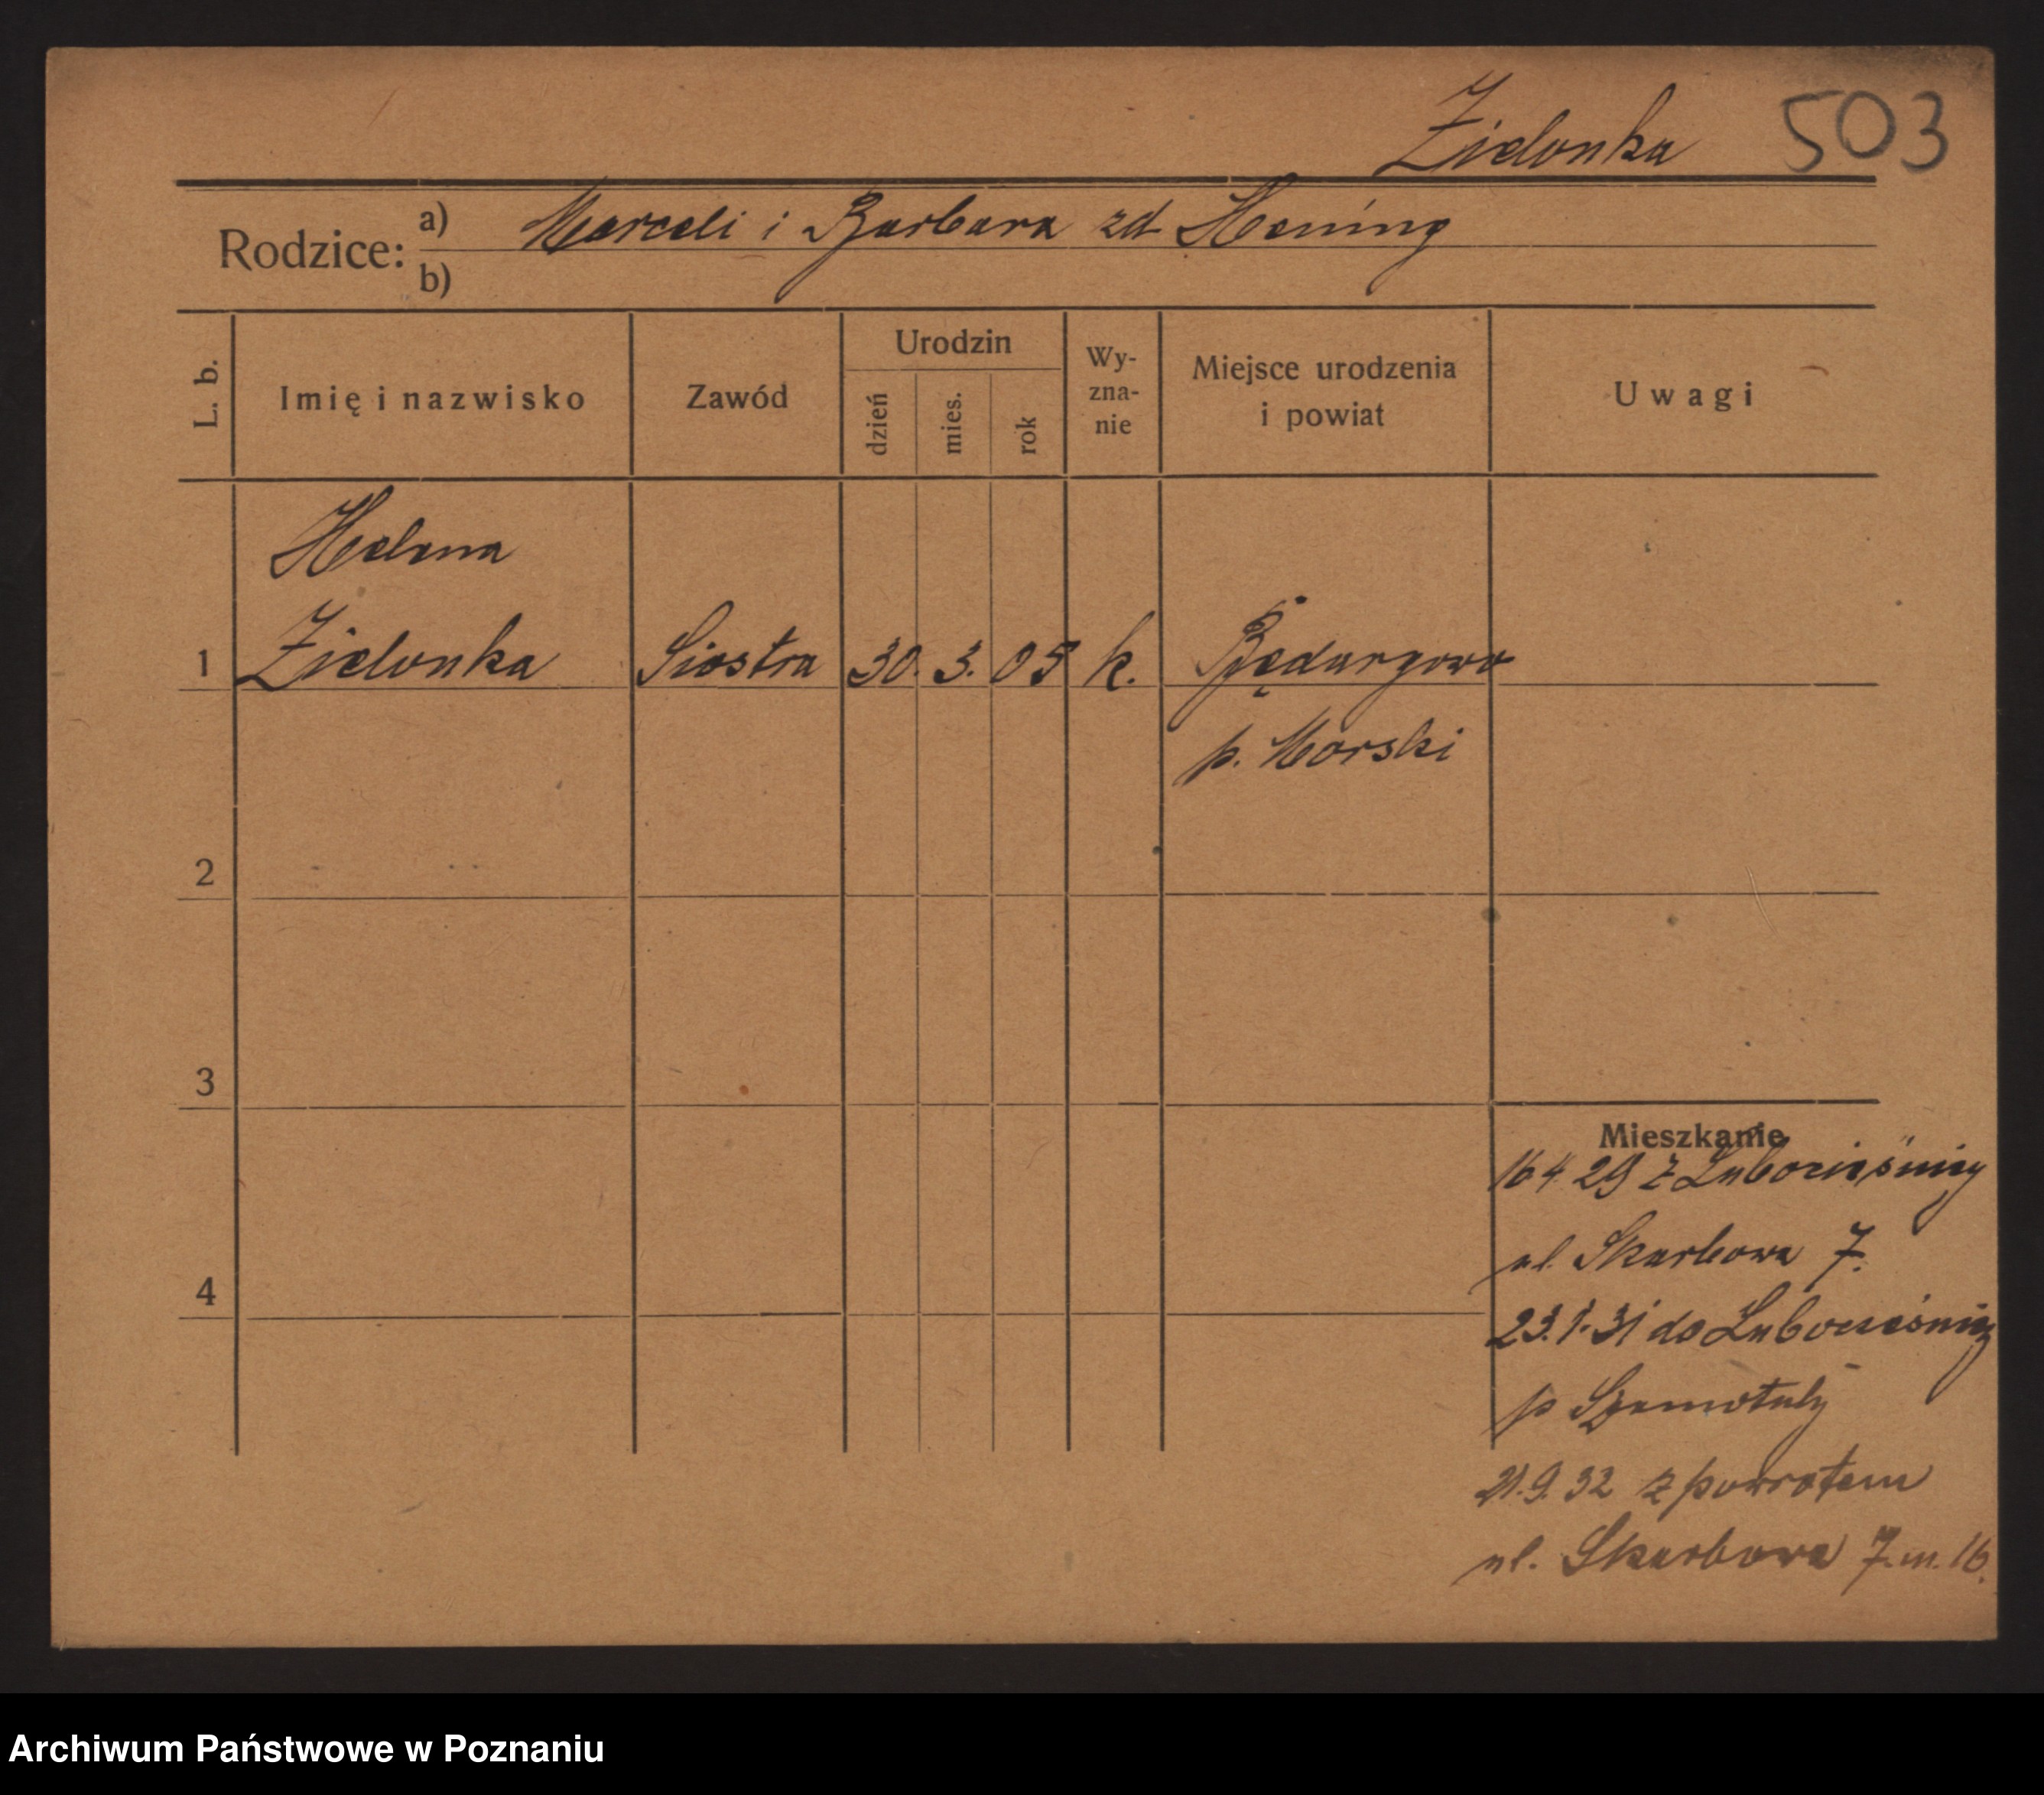 Zielonka 503
Rodzice: a) Marceli i Barbara zd Hening
b)
L. b. Imię i nazwisko Zawód Urodzin dzień mies. rok Wy-zna-nie Miejsce urodzenia i powiat Uwagi
Helena
1 Zielonka Siostra 30. 3. 05 k. Będargowo
p. Morski
2
3
Mieszkanie
16 4 29 z Lubocieśnicy
ul. Skarbowa 7.
4
23.1.31 do Lubocześnicy
p Szamotuły
21.9.32 z powrotem
ul. Skarbowa 7. m. 16.
Archiwum Państwowe w Poznaniu